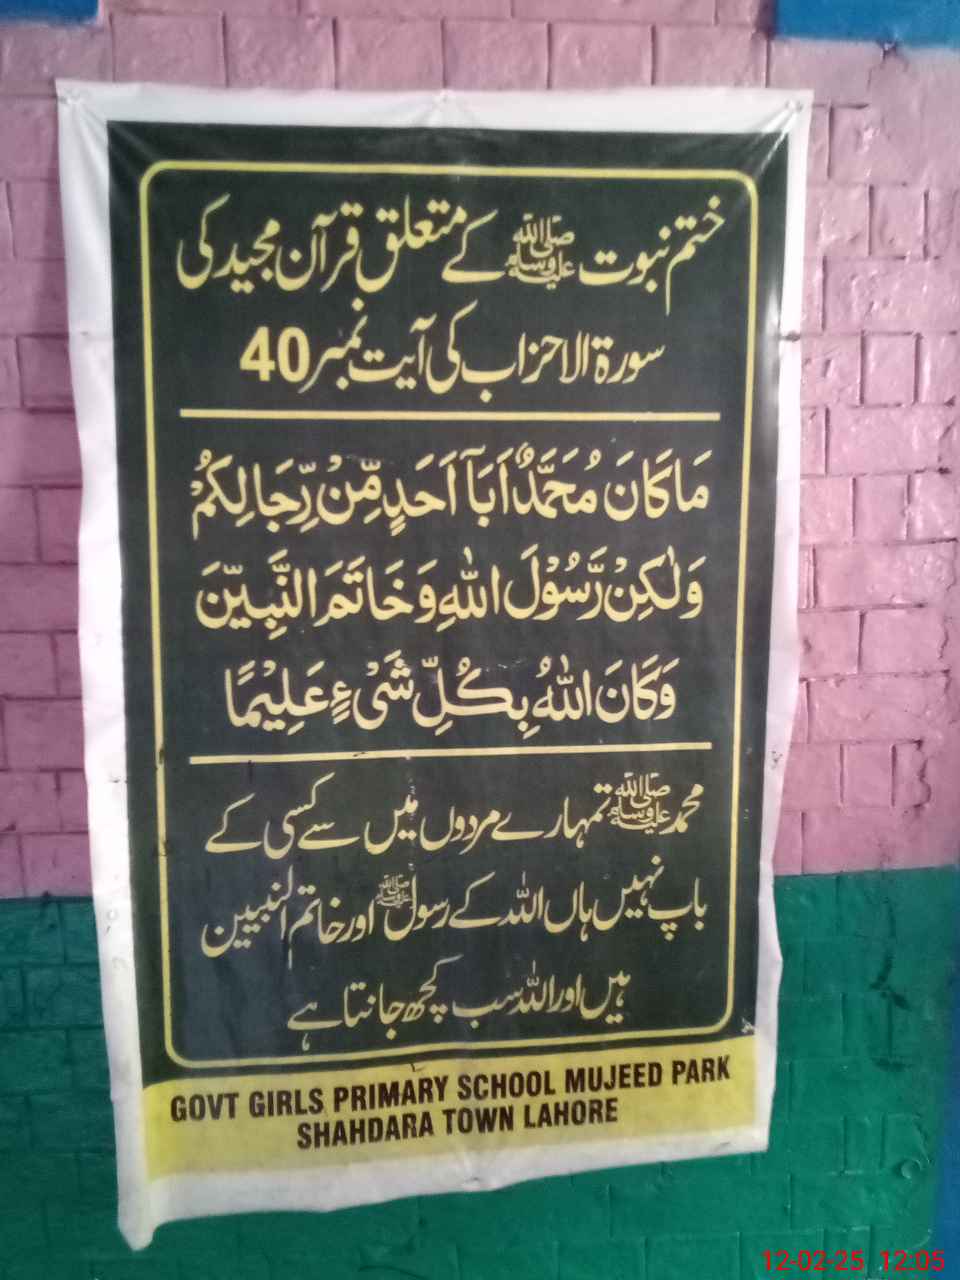 ختم نبوت ﷺ کے متعلق قرآن مجید کی
سورۃ الاحزاب کی آیت نمبر 40
مَا كَانَ مُحَمَّدٌ اَبَآ اَحَدٍ مِّنْ رِّجَالِكُمْ
وَلٰكِنْ رَّسُوْلَ اللّٰهِ وَخَاتَمَ النَّبِيّٖنَ
وَكَانَ اللّٰهُ بِكُلِّ شَىْءٍ عَلِيْمًا
محمد ﷺ تمہارے مردوں میں سے کسی کے
باپ نہیں ہاں اللہ کے رسول ﷺ اور خاتم النبیین
ہیں اور اللہ سب کچھ جانتا ہے
GOVT GIRLS PRIMARY SCHOOL MUJEED PARK
SHAHDARA TOWN LAHORE
12-02-25 12:05